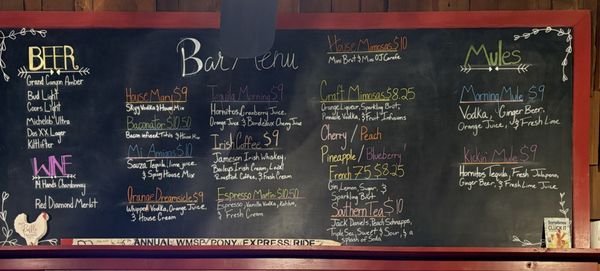 BEER
Grand Canyon Amber
Bud Light
Coors Light
Michelob Ultra
Dos XX Lager
Kiltlifter
WINE
14 Hands Chardonnay
Red Diamond Merlot
Bar Menu
House Mary $9
Skyy Vodka & House Mix
Baconator $10.50
Bacon Infused Tito's & House Mix
Mi Amiga $10
Sauza Tequila, lime juice,
& Spicy House Mix
Orange Dreamsicle $9
Whipped Vodka, Orange Juice,
& House Cream
Tequila Morning $9
Hornitos, Cranberry Juice,
Orange Juice & Bordeaux Cherry Juice
Irish Coffee $9
Jameson Irish Whiskey,
Baileys Irish Cream, Local
Roasted Coffee, & Fresh Cream
Espresso Martini $10.50
Espresso, Vanilla Vodka, Kahlua,
& Fresh Cream
House Mimosas $10
Mini Brut & Mini OJ Carafe
Craft Mimosas $8.25
Orange Liqueur, Sparkling Brut,
Pinnacle Vodka, & Fruit Infusions
Cherry / Peach
Pineapple / Blueberry
French 75 $8.25
Gin, Lemon, Sugar, &
Sparkling Brut
Southern Tea $10
Jack Daniels, Peach Schnapps,
Triple Sec, Sweet & Sour, & a
splash of Soda
Mules
Morning Mule $9
Vodka, Ginger Beer,
Orange Juice, & Fresh Lime
Kickin' Mule $9
Hornitos Tequila, Fresh Jalapeno,
Ginger Beer, & Fresh Lime Juice
ANNUAL WMSP/PONY EXPRESS RIDE